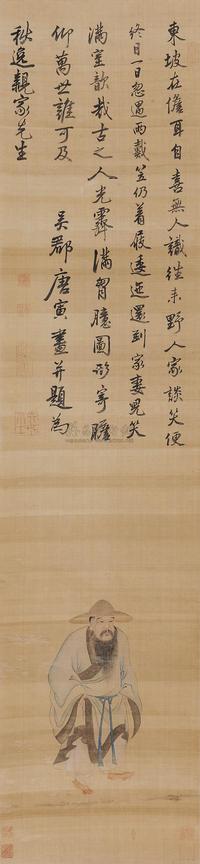 東坡在儋耳自喜無人識往來野人家談笑便
終日一日忽遇雨戴笠仍着屐逶迤還到家妻兒笑
滿室歆哉古之人光霽滿胸臆圖形寄瞻
仰萬世誰可及 吳郡唐寅畫并題為
秋逸親家先生